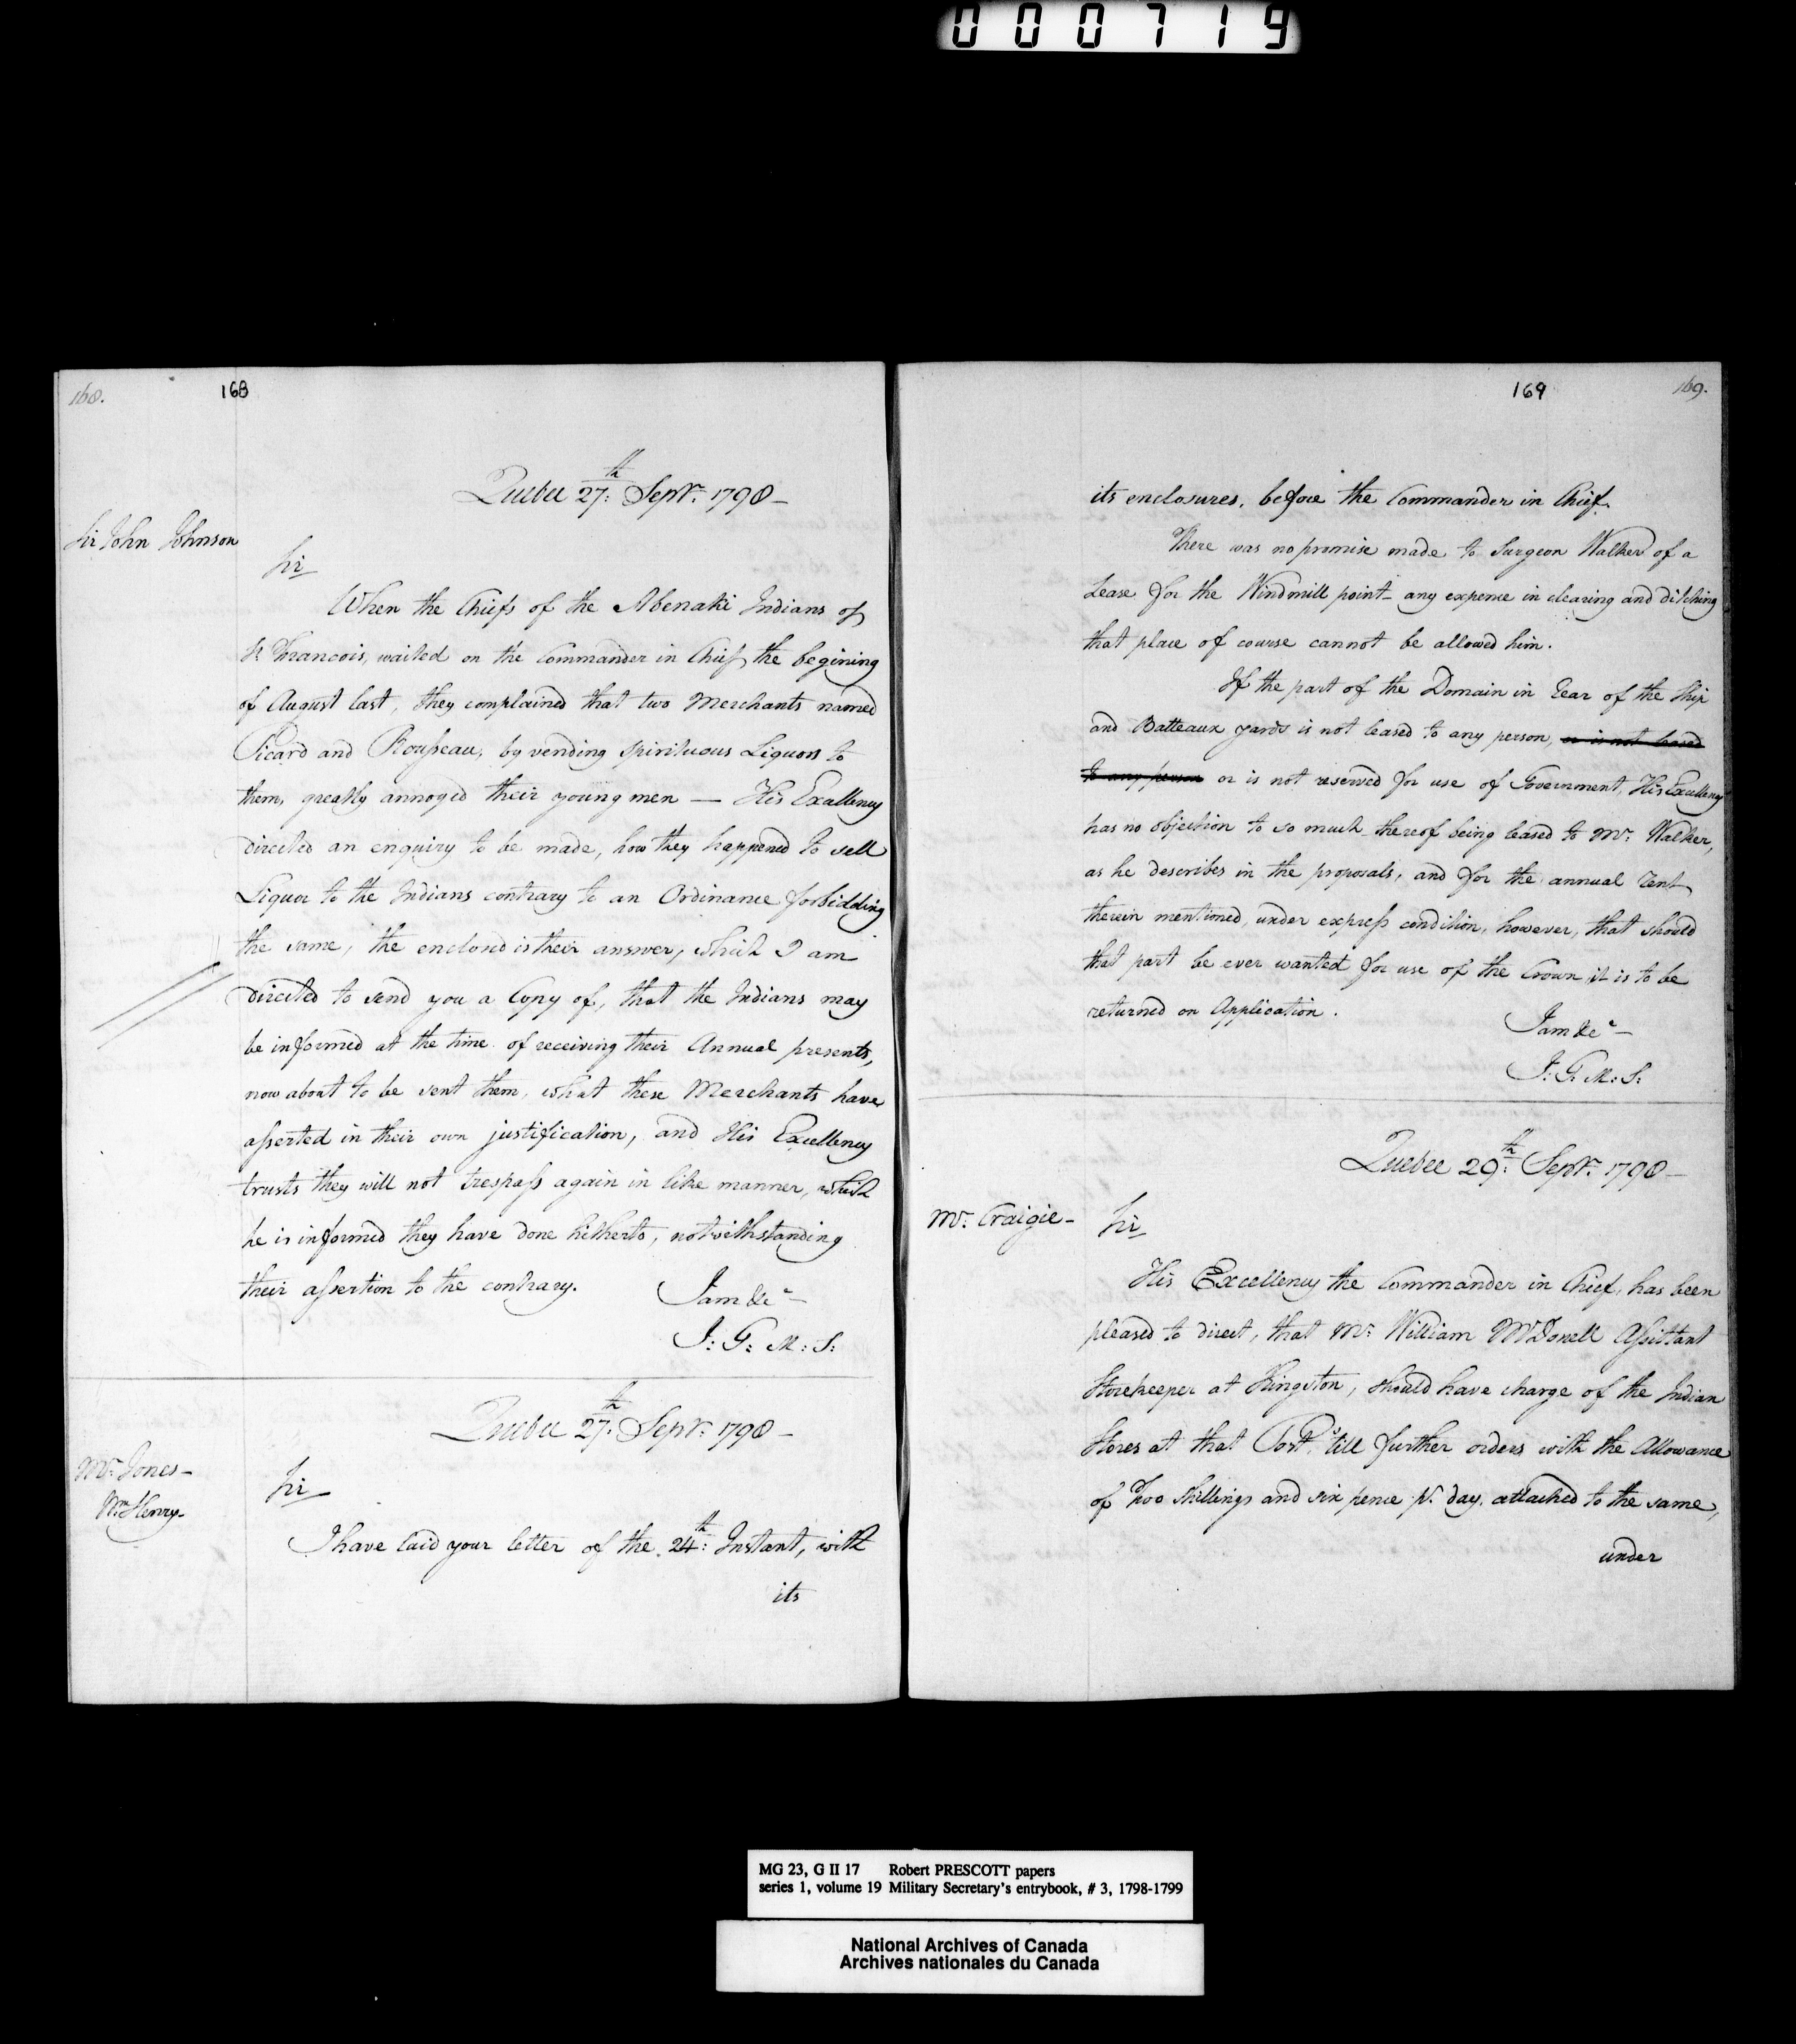 000719
168.
168
Quebec 27th: Septr. 1798 —
Sir John Johnson
Sir
When the Chiefs of the Abenaki Indians of
St. Francois, waited on the Commander in Chief the begining
of August last, they complained that two Merchants named
Picard and Rousseau, by vending spirituous Liquors to
them, greatly annoyed their young men — His Excellency
directed an enquiry to be made, how they happened to sell
Liquor to the Indians contrary to an Ordinance forbidding
the same, the enclosed is their answer, which I am
directed to send you a Copy of, that the Indians may
be informed at the time of receiving their Annual presents,
now about to be sent them, what these Merchants have
asserted in their own justification, and His Excellency
trusts they will not trespass again in like manner, which
he is informed they have done hitherto, notwithstanding
their assertion to the contrary.
I am &c—
J: G: M: S:
Quebec 27th: Septr: 1798 —
Mr. Jones —
Wm. Henry —
Sir
I have laid your letter of the 24th: Instant, with
its
169
169.
its enclosures, before the Commander in Chief.
There was no promise made to Surgeon Walker of a
Lease for the Windmill point — any expense in clearing and ditching
that place of course cannot be allowed him.
If the part of the Domain in rear of the Ship
and Batteaux yards is not leased to any person, or is not leased
to any person or is not reserved for use of Government, His Excellency
has no objection to so much thereof being leased to Mr: Walker,
as he describes in the proposals, and for the annual rent
therein mentioned, under express condition, however, that should
that part be ever wanted for use of the Crown, it is to be
returned on Application.
I am &c —
J: G: M: S:
Quebec 29th: Septr. 1798 —
Mr: Craigie —
Sir
His Excellency the Commander in Chief, has been
pleased to direct, that Mr: William McDonell Assistant
Storekeeper at Kingston, should have charge of the Indian
Stores at that Post, till further orders with the Allowance
of Two Shillings and six pence pr. day, attached to the same,
under
MG 23, G II 17 Robert PRESCOTT papers
series 1, volume 19 Military Secretary's entrybook, # 3, 1798-1799
National Archives of Canada
Archives nationales du Canada